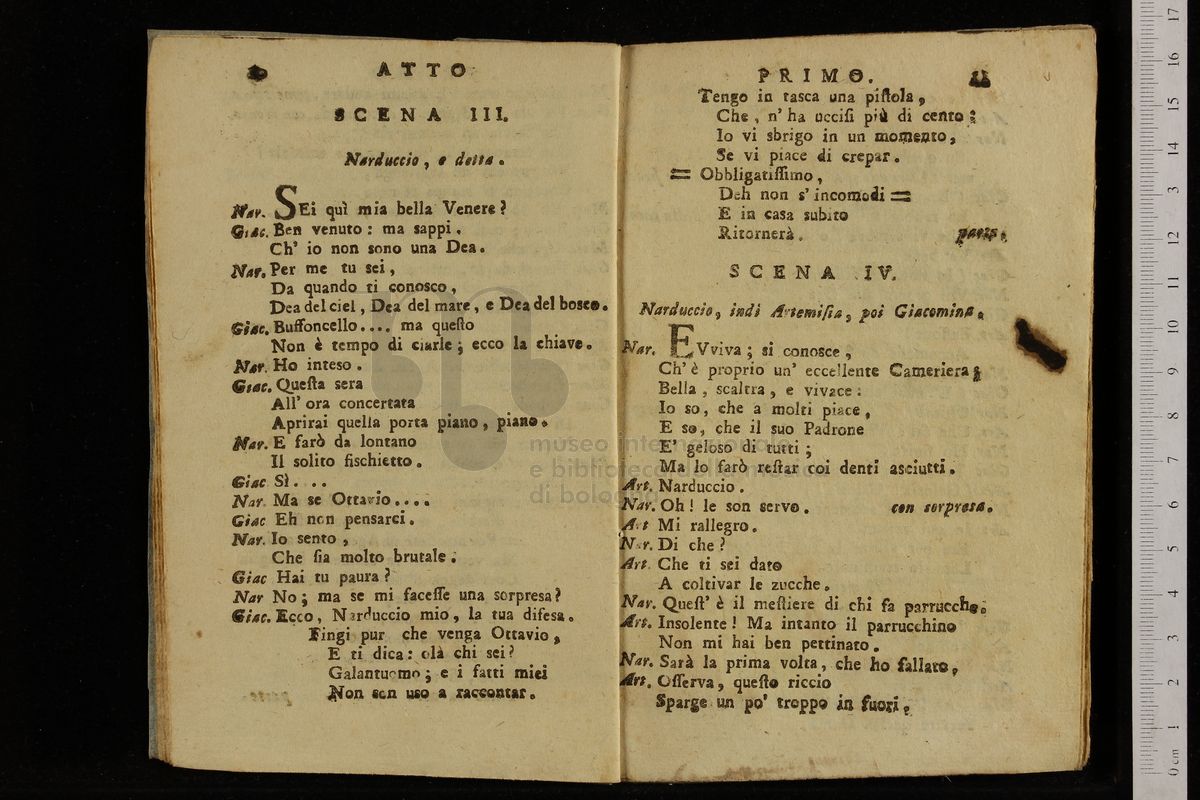 ATTO
SCENA III.
Narduccio, e detta.
Nar. SEi quì mia bella Venere?
Giac. Ben venuto: ma sappi.
Ch' io non sono una Dea.
Nar. Per me tu sei,
Da quando ti conosco,
Dea del ciel, Dea del mare, e Dea del bosco.
Giac. Buffoncello.... ma queſto
Non è tempo di ciarle; ecco la chiave.
Nar. Ho inteso.
Giac. Queſta sera
All' ora concertata
Aprirai quella porta piano, piano.
Nar. E farò da lontano
Il solito fischietto.
Giac Sì....
Nar. Ma se Ottavio....
Giac Eh non pensarci.
Nar. Io sento,
Che ſia molto brutale.
Giac Hai tu paura?
Nar No; ma se mi faceſſe una sorpresa?
Giac. Ecco, Narduccio mio, la tua difesa.
Fingi pur che venga Ottavio,
E ti dica: olà chi sei?
Galantuomo; e i fatti miei
Non son uso a raccontar.
PRIMO. 11
Tengo in tasca una piſtola,
Che, n' ha ucciſi più di cento;
Io vi sbrigo in un momento,
Se vi piace di crepar.
= Obbligatiſſimo,
Deh non s' incomodi =
E in casa subito
Ritornerà. parte.
SCENA IV.
Narduccio, indi Artemiſia, poi Giacomina.
Nar. EVviva; si conosce,
Ch' è proprio un' eccellente Cameriera;
Bella, scaltra, e vivace:
Io so, che a molti piace,
E so, che il suo Padrone
E' geloso di tutti;
Ma lo farò reſtar coi denti asciutti.
Art. Narduccio.
Nar. Oh! le son servo. con sorpresa.
Art Mi rallegro.
Nar. Di che?
Art. Che ti sei dato
A coltivar le zucche.
Nar. Queſt' è il meſtiere di chi fa parrucche.
Art. Insolente! Ma intanto il parrucchino
Non mi hai ben pettinato.
Nar. Sarà la prima volta, che ho fallato,
Art. Oſſerva, queſto riccio
Sparge un po' troppo in fuori,
museo internazionale
e biblioteca della musica
di bologna
0 cm 1 2 3 4 5 6 7 8 9 10 11 12 13 14 15 16 17